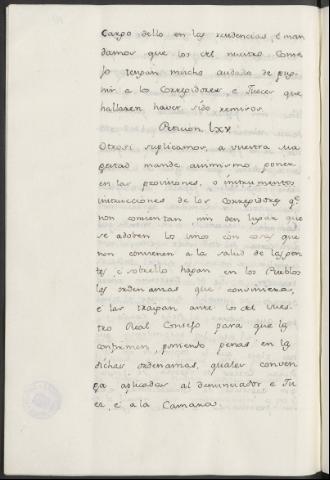 Cargo dello en las residencias, é man
damos que los del nuestro Conse
jo tengan mucho cuidado de pug-
nir a los Corregidores, e Jueces que
hallaren haver sido remisos.
Peticion LXV.
Otrosi suplicamos, a vuestra Ma
gestad mande asimismo poner
en las provisiones, o instrumentos
instrucciones de los Corregidores qe
non consientan, nin den lugar que
se adoben los vinos con cosas que
non convienen a la salud de las gen
tes, e sobrello hagan en los Pueblos
las ordenanzas que convinieren,
e las traigan ante los del vues
tro Real Consejo para que las
confirmen, poniendo penas en las
dichas ordenanzas, quales conven
ga aplicadas al denunciador e Ju
ez, e a la Camara.